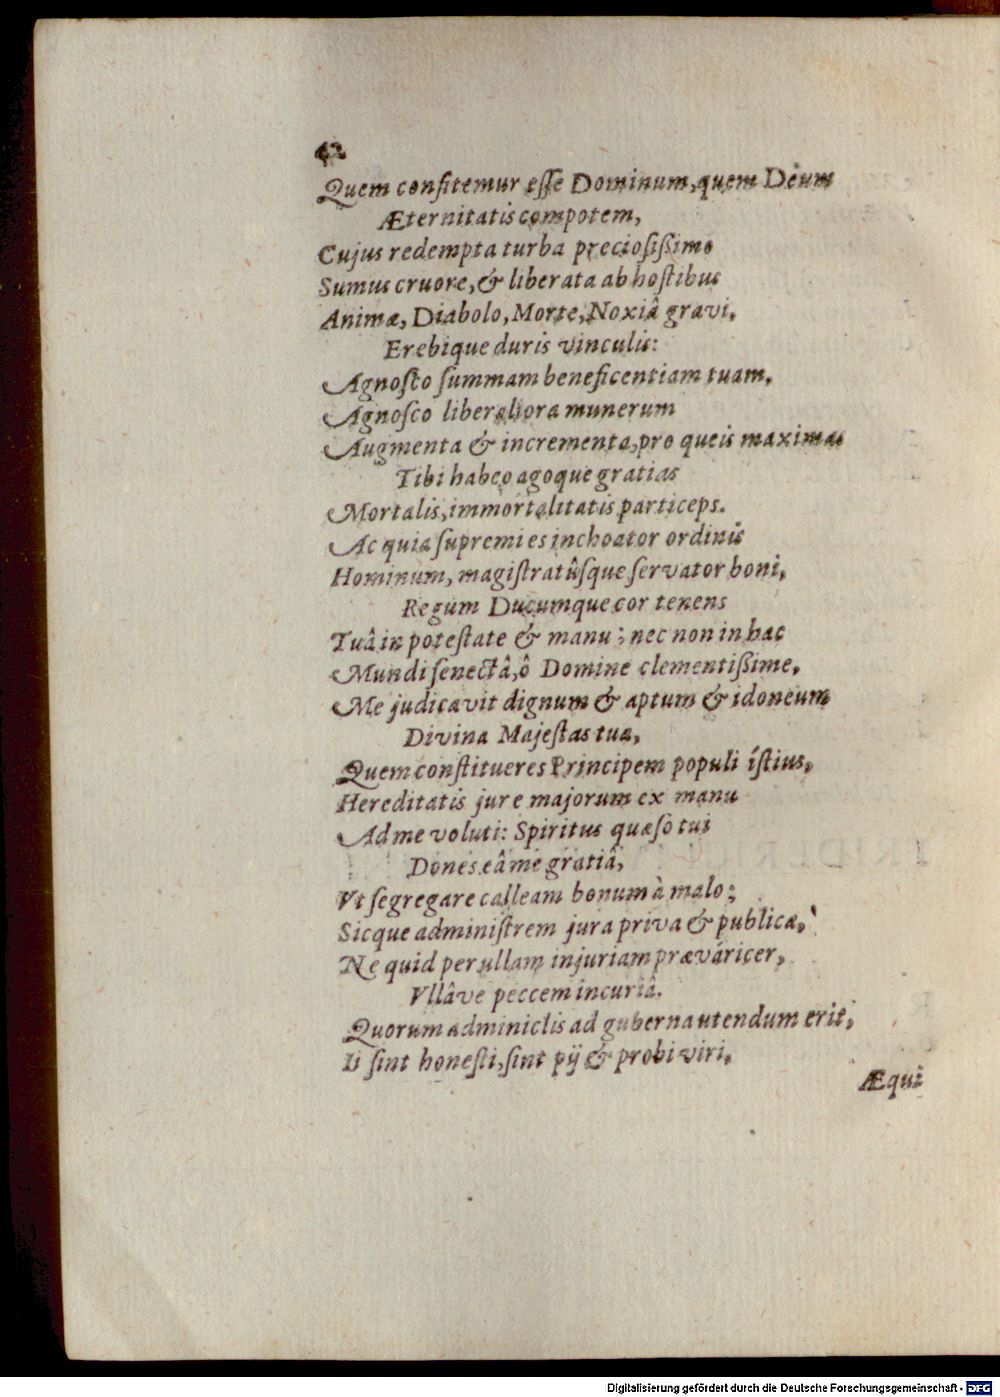 42
Quem confitemur esse Dominum, quem Deum
Æternitatis compotem,
Cujus redempta turba preciosißimo
Sumus cruore, & liberata ab hostibus
Animæ, Diabolo, Morte, Noxiâ gravi,
Erebique duris vinculis:
Agnosco summam beneficentiam tuam,
Agnosco liberaliora munerum
Augmenta & incrementa, pro queis maximas
Tibi habeo agoque gratias
Mortalis, immortalitatis particeps.
Ac quia supremi es inchoator ordinis
Hominum, magistratûsque servator boni,
Regum Ducumque cor tenens
Tuâ in potestate & manu; nec non in hac
Mundi senectâ, ô Domine clementißime,
Me judicavit dignum & aptum & idoneum
Divina Majestas tua,
Quem constitueres Principem populi istius,
Hereditatis jure majorum ex manu
Ad me voluti: Spiritus quæso tui
Dones eâ me gratiâ,
Vt segregare calleam bonum à malo;
Sicque administrem jura priva & publica,
Ne quid per ullam injuriam prævaricer,
Vllâve peccem incuriâ.
Quorum adminiclis ad guberna utendum erit,
Ii sint honesti, sint pij & probi viri,
Æqui
Digitalisierung gefördert durch die Deutsche Forschungsgemeinschaft - DFG